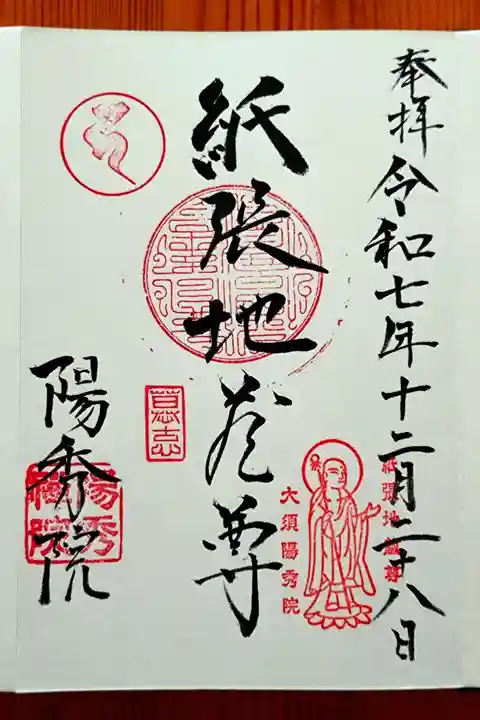 奉拝 令和七年十二月二十八日
紙張地蔵尊
陽秀院
紙張地蔵尊
大須陽秀院